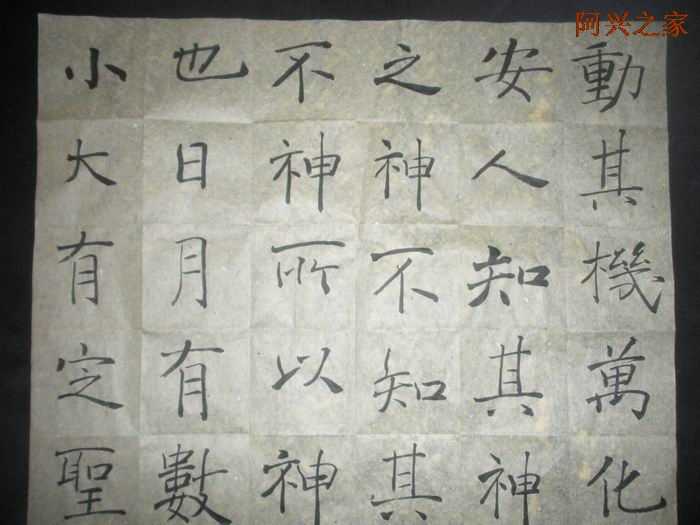 阿兴之家
動其機萬化
安人知其神
之神不知其
不神所以神
也日月有數
小大有定聖